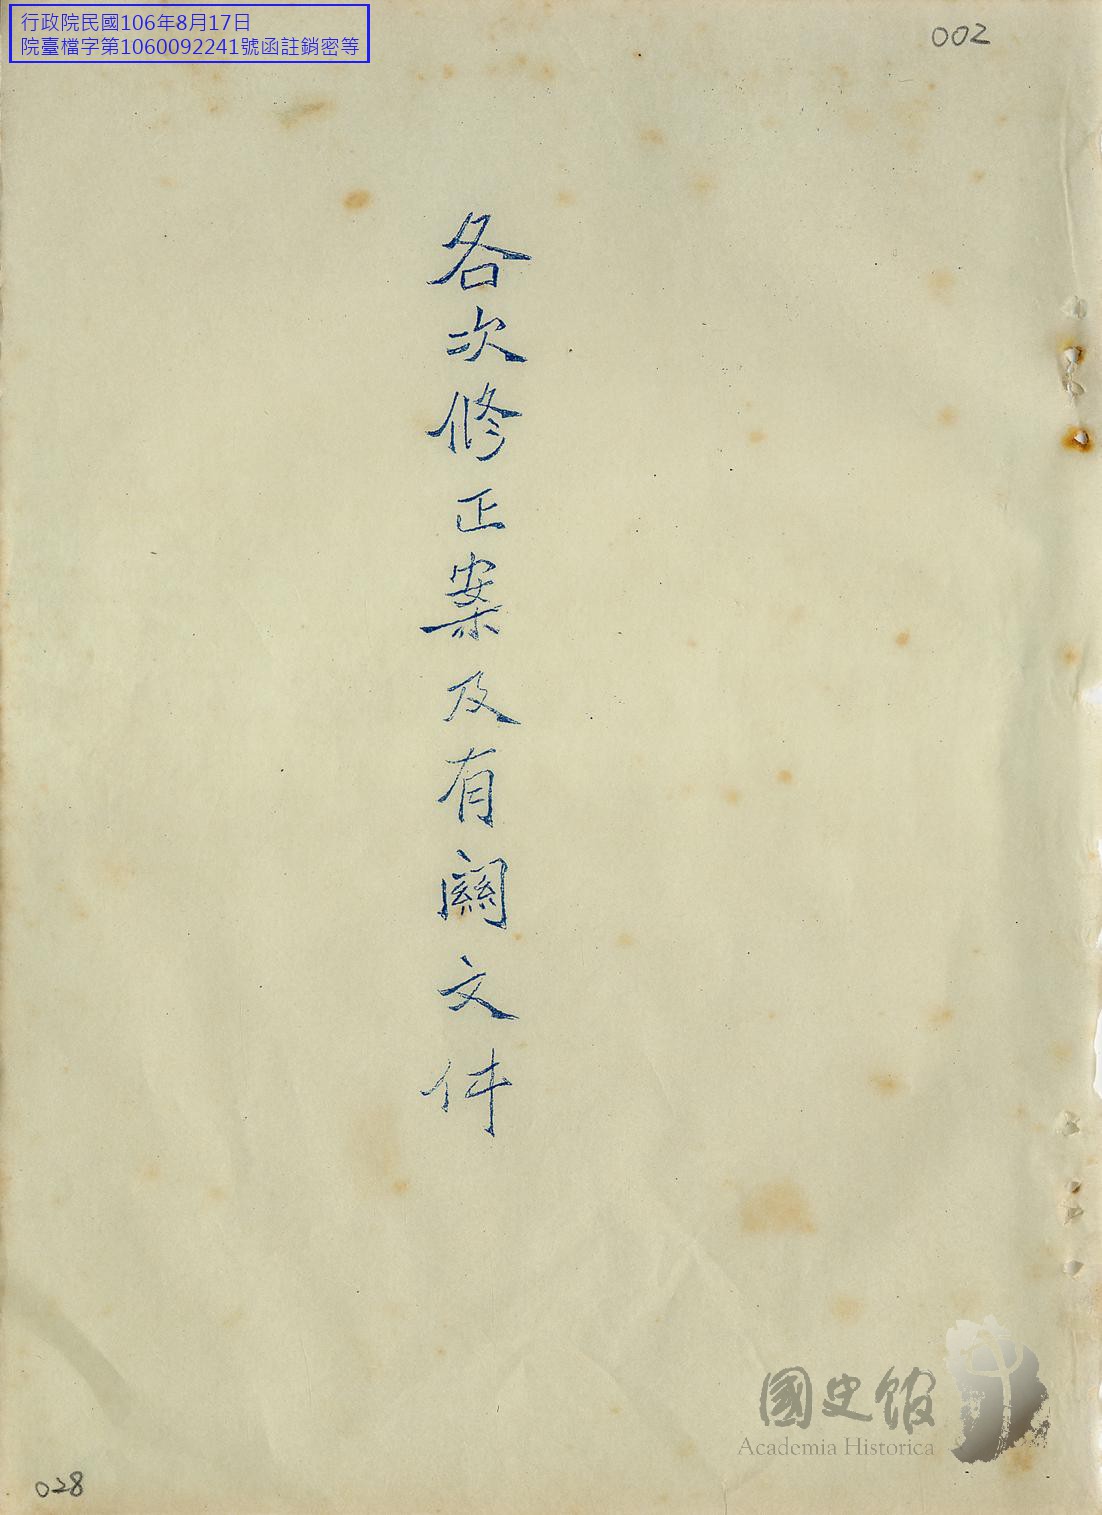 行政院民國106年8月17日
院臺檔字第1060092241號函註銷密等
002
各次修正案及有關文件
國史館
Academia Historica
028